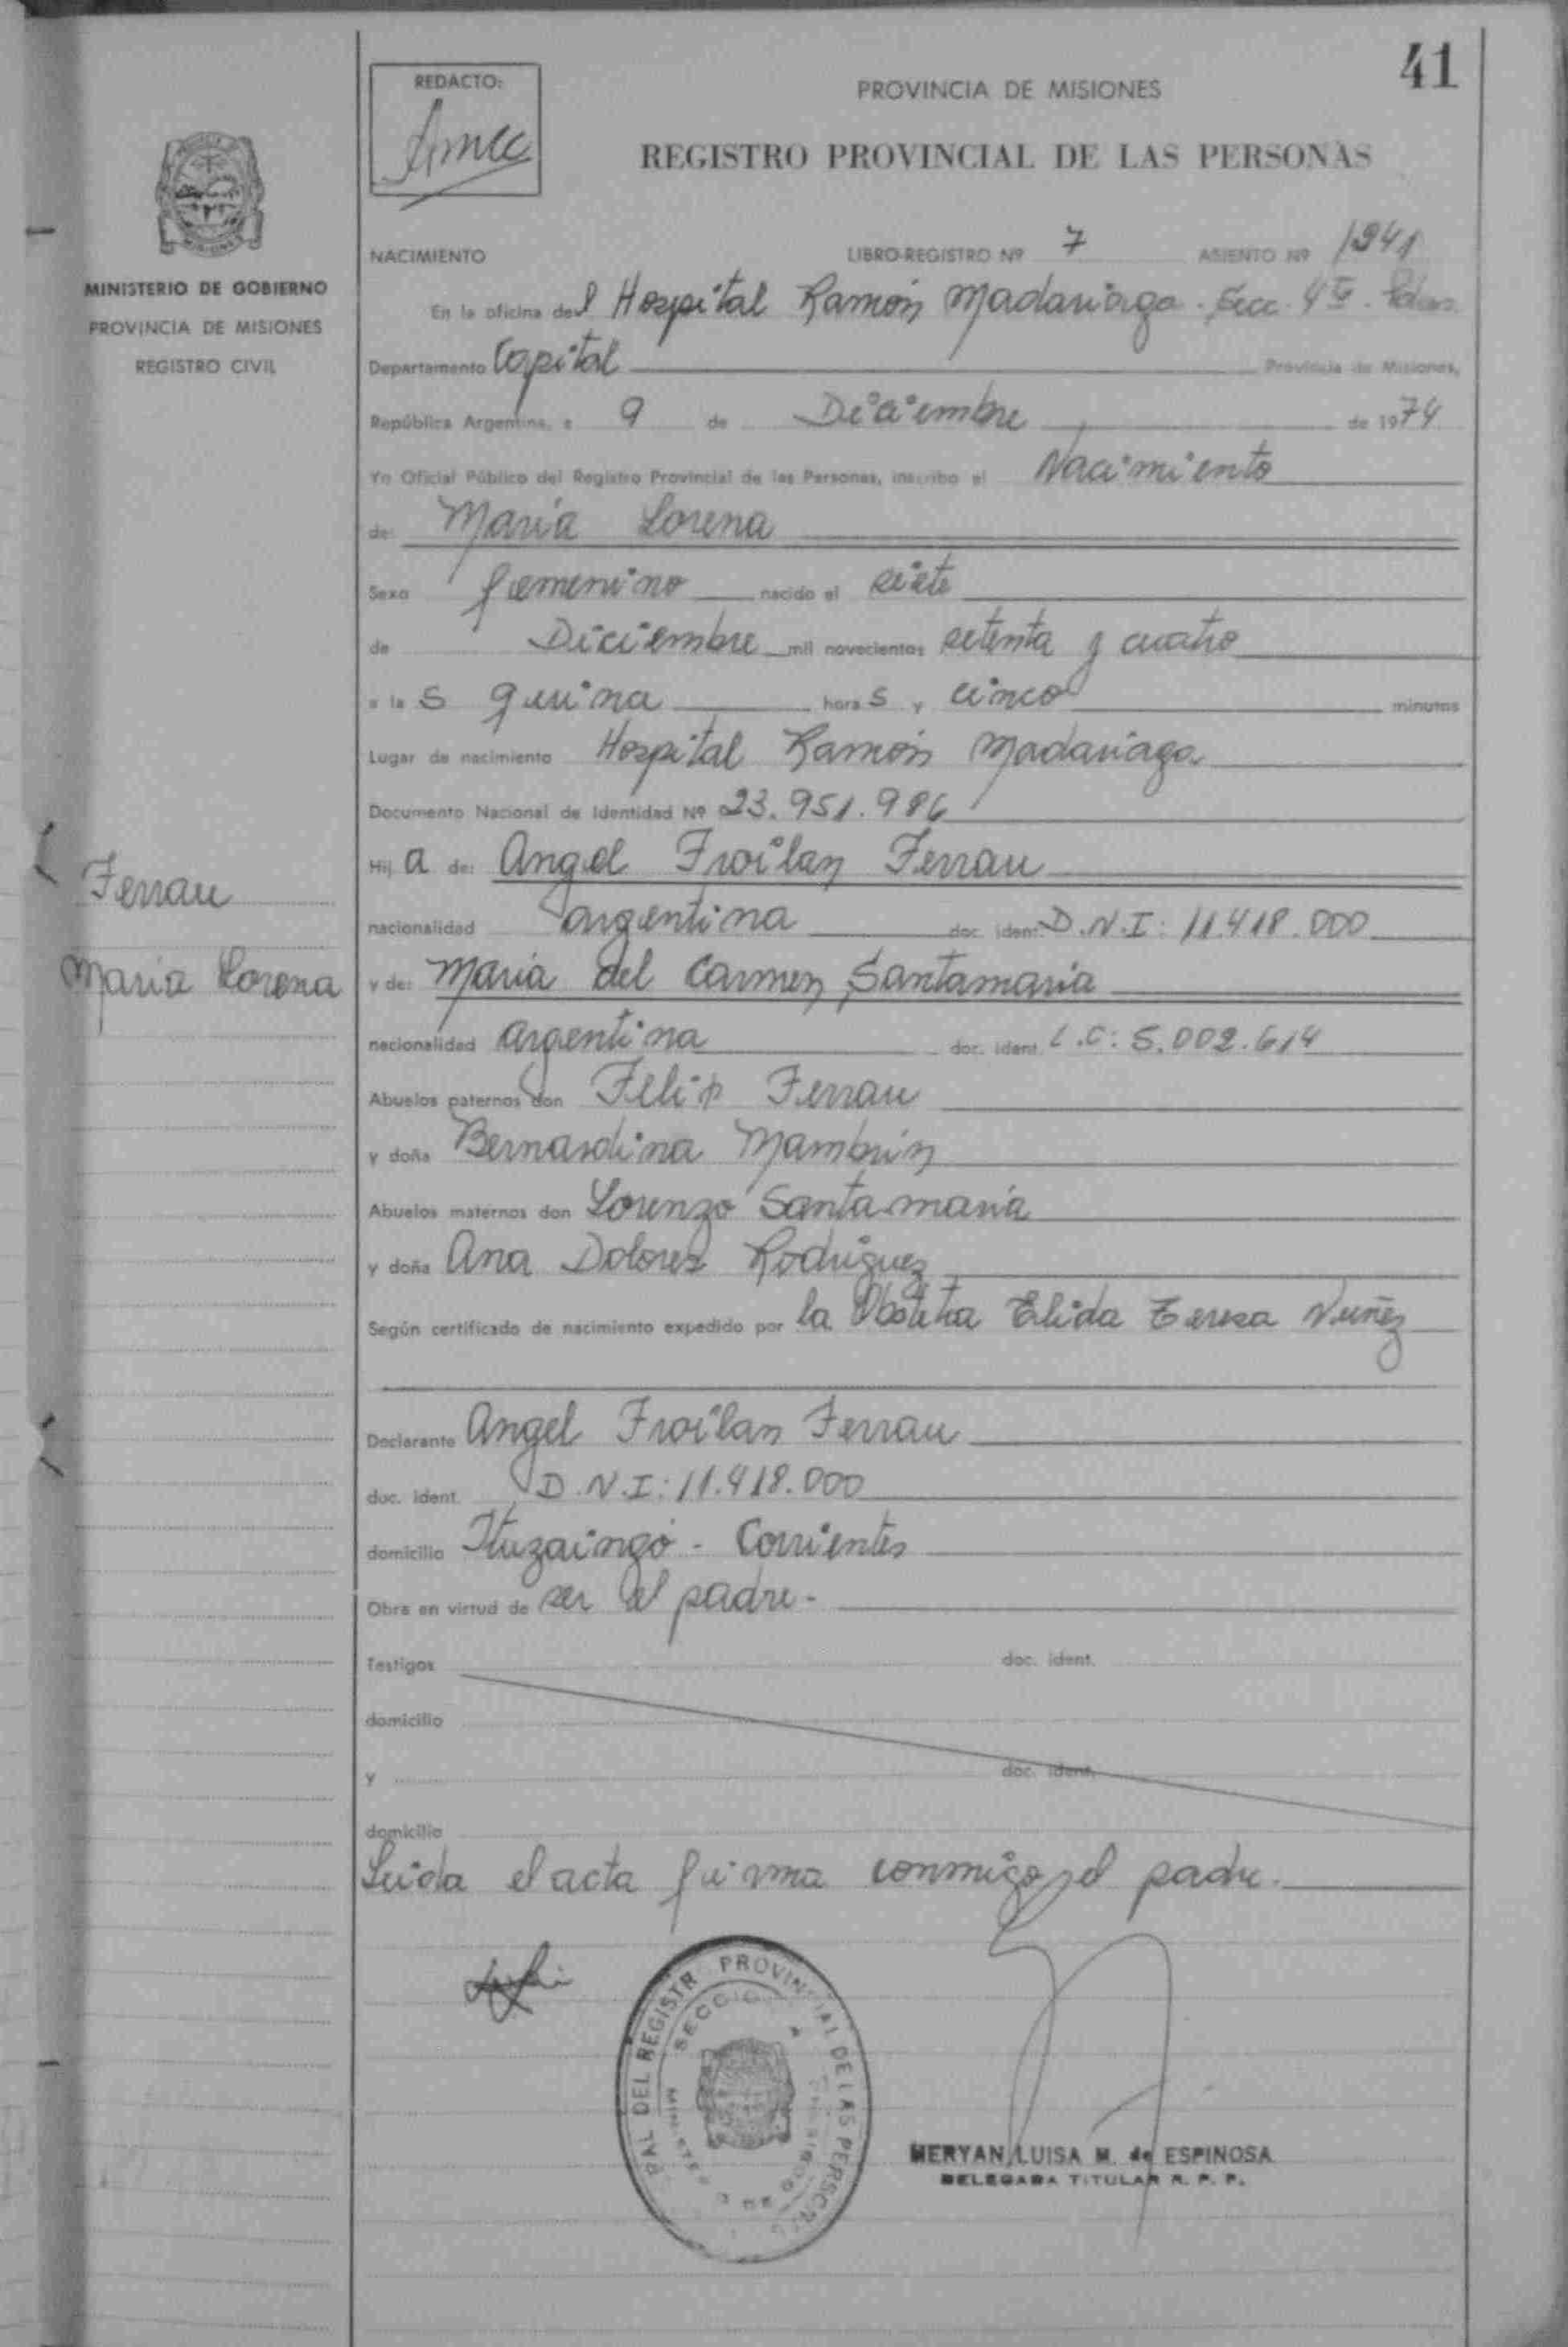 41
REDACTO:
PROVINCIA DE MISIONES
REGISTRO PROVINCIAL DE LAS PERSONAS
MINISTERIO DE GOBIERNO
PROVINCIA DE MISIONES
REGISTRO CIVIL
NACIMIENTO LIBRO-REGISTRO Nº 7 ASIENTO Nº 1941
En la oficina del Hospital Ramón Madariaga. Secc. 4ª. Pdas.
Departamento Capital Provincia de Misiones,
República Argentina, a 9 de Diciembre de 1974
Yo Oficial Público del Registro Provincial de las Personas, inscribo el Nacimiento
de: María Lorena
Sexo femenino nacido el siete
de Diciembre mil novecientos setenta y cuatro
a la s quina hora s y cinco minutos
Lugar de nacimiento Hospital Ramón Madariaga
Documento Nacional de Identidad Nº 23.951.986
Hij a de: Angel Froilan Ferrau
nacionalidad argentina doc. ident. D.N.I: 11.418.000
y de: María del Carmen Santamaría
nacionalidad argentina doc. ident. L.C: 5.002.614
Abuelos paternos don Felip Ferrau
y doña Bernardina Mambrin
Abuelos maternos don Lorenzo Santamaría
y doña Ana Dolores Rodriguez
Según certificado de nacimiento expedido por la Obstetra Elida Teresa Nuñez
Declarante Angel Froilan Ferrau
doc. ident. D.N.I: 11.418.000
domicilio Ituzaingó - Corrientes
Obra en virtud de ser el padre -
Testigos doc. ident.
domicilio
y doc. ident.
domicilio
Leida el acta firma conmigo el padre.
Ferrau
Maria Lorena
DEL REGISTR PROVINCIAL DE LAS PERSON
SECCIO
MERYAN LUISA M. de ESPINOSA
DELEGADA TITULAR R. P. P.